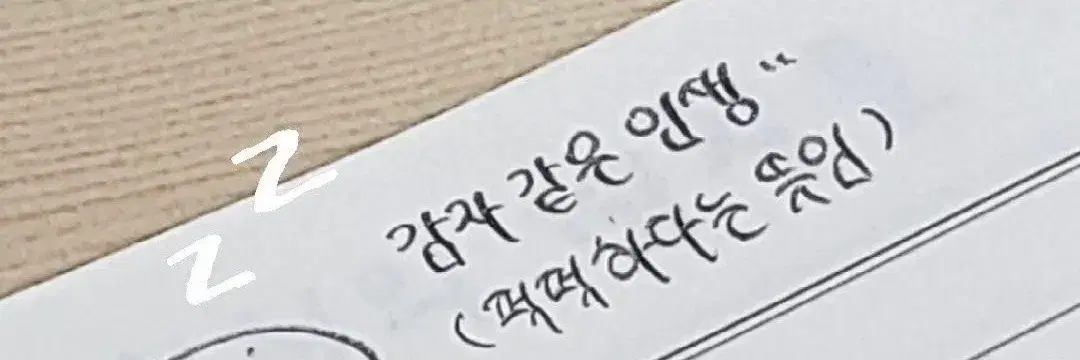 감자 같은 인생"
(퍽퍽하다는 뜻임)
z
z